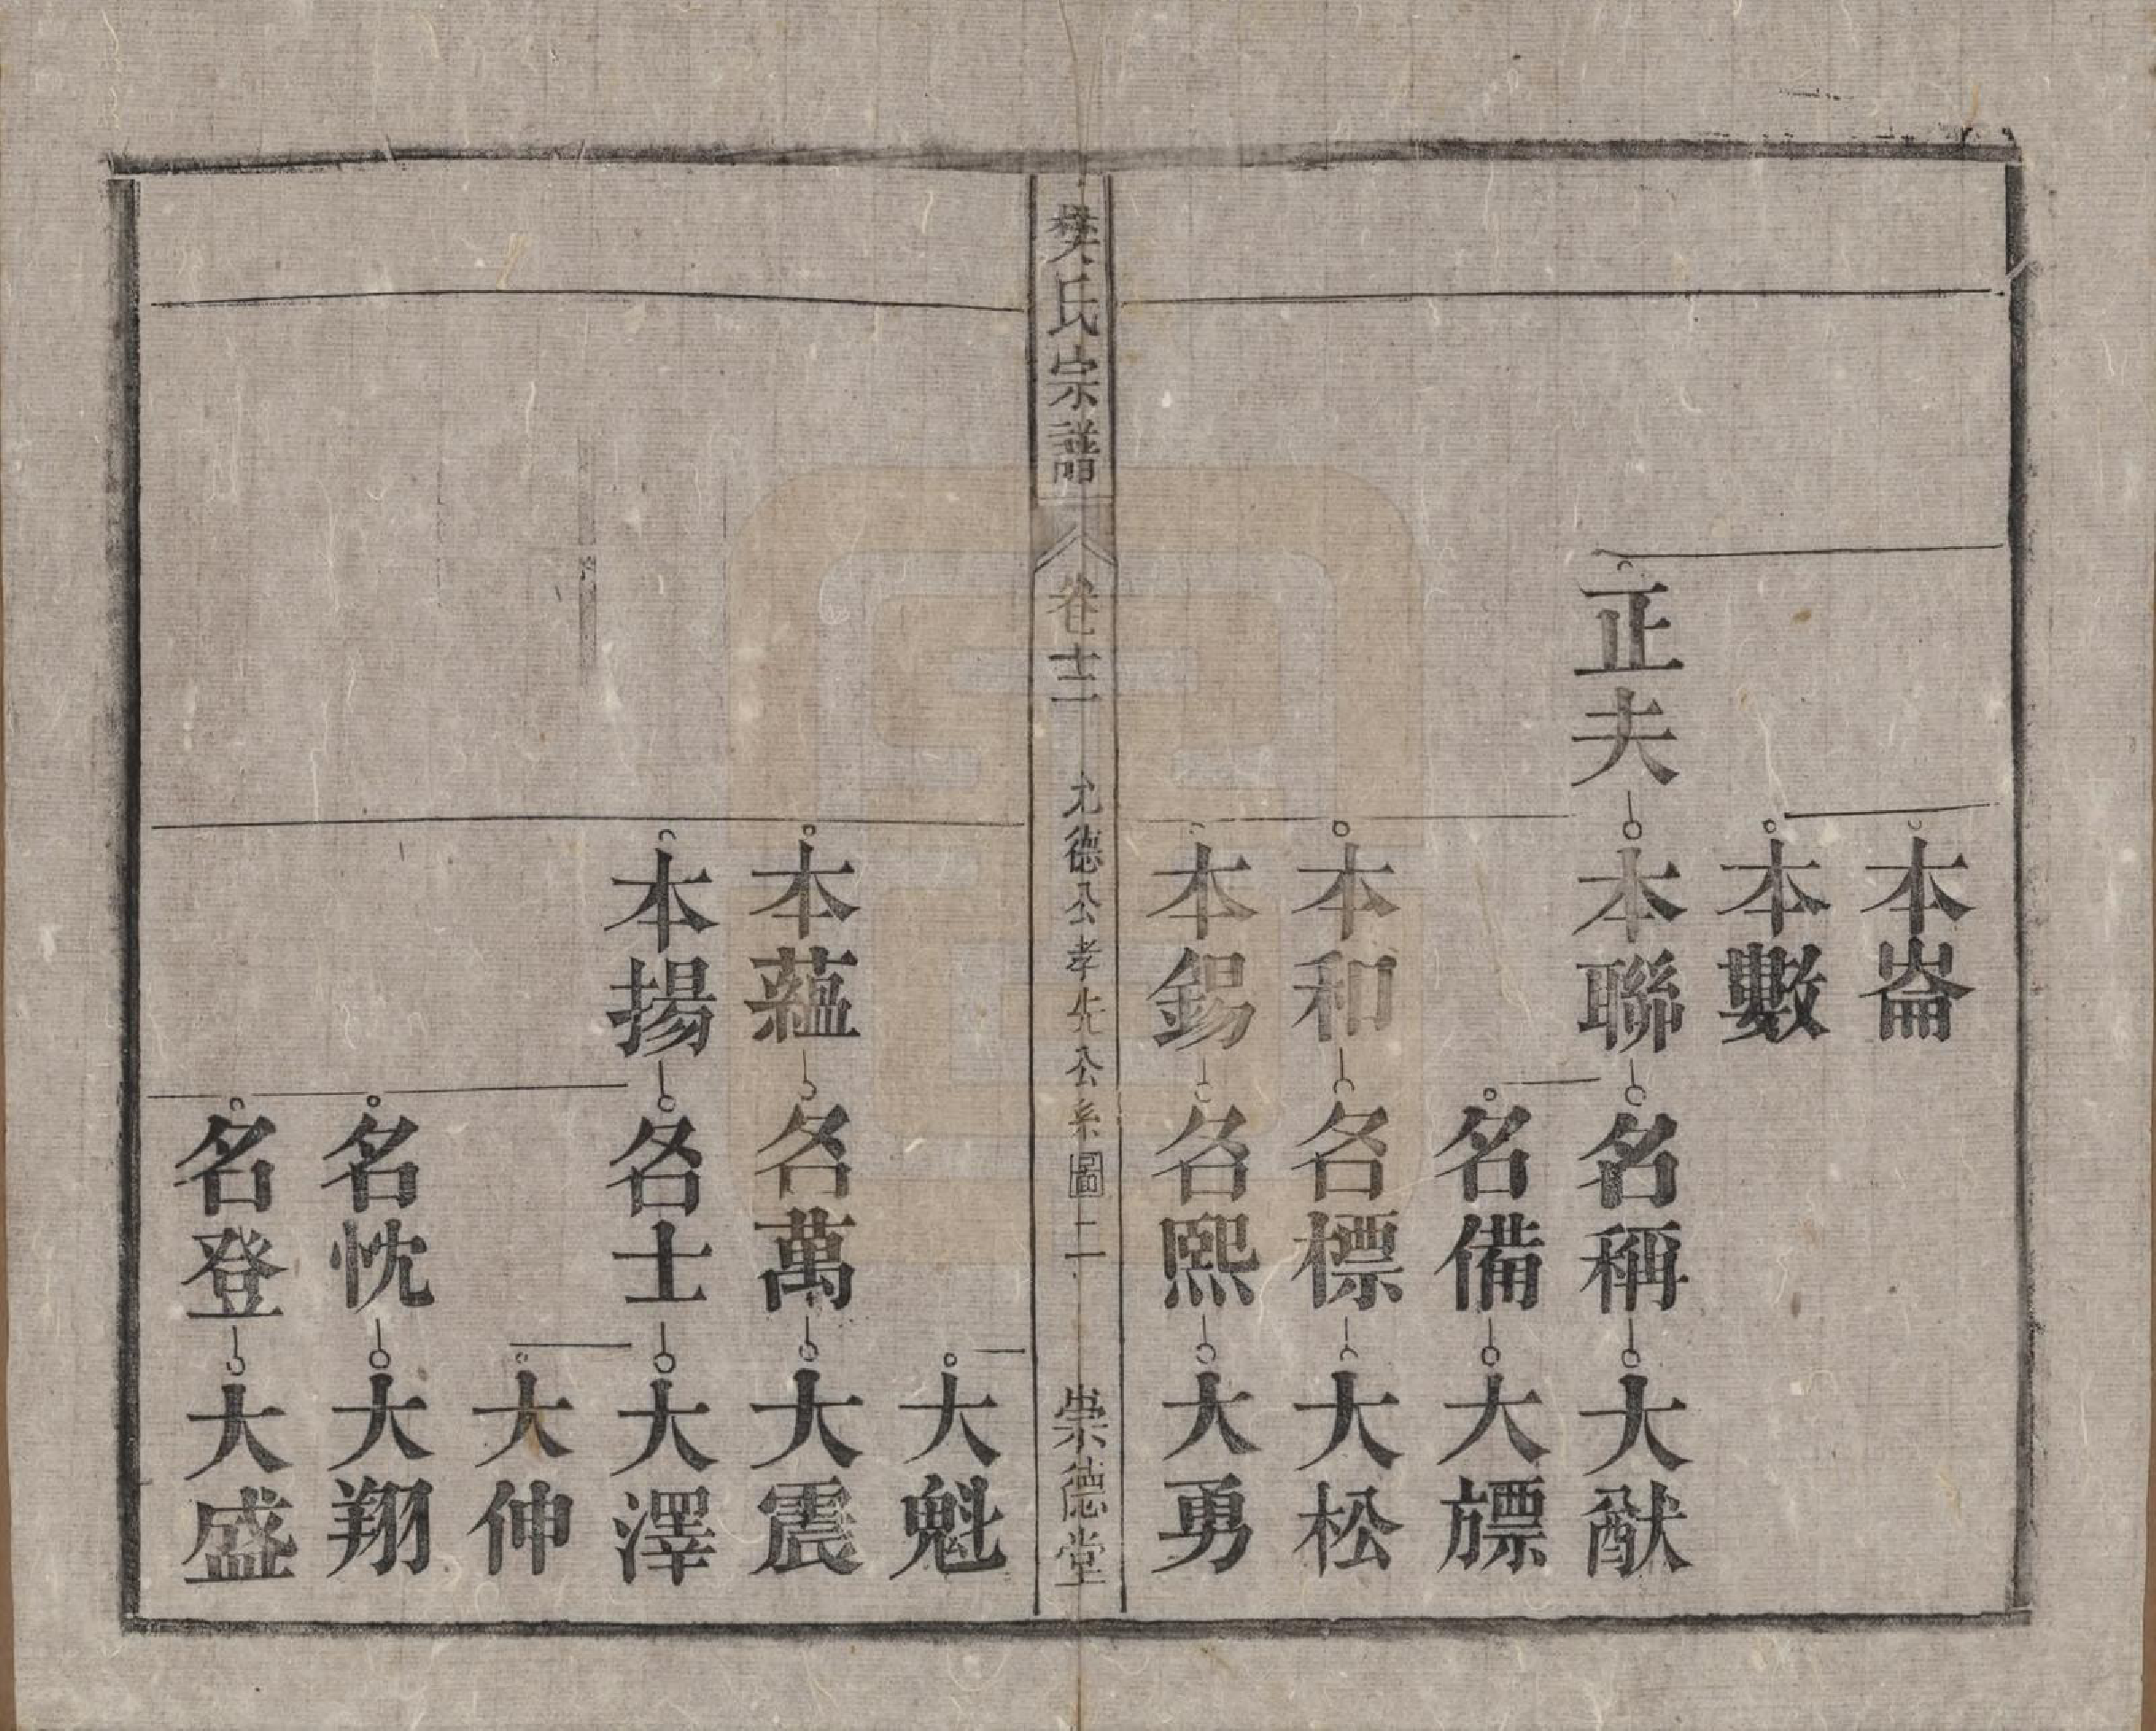 本崙
本數
正夫 本聯 名稱 大猷
名備 大旟
本和 名標 大松
本錫 名熙 大勇
樊氏宗譜 卷十二 允德公孝先公系圖二 崇德堂
大魁
本蘊 名萬 大震
本揚 名士 大澤
大伸
名忱 大翔
名登 大盛